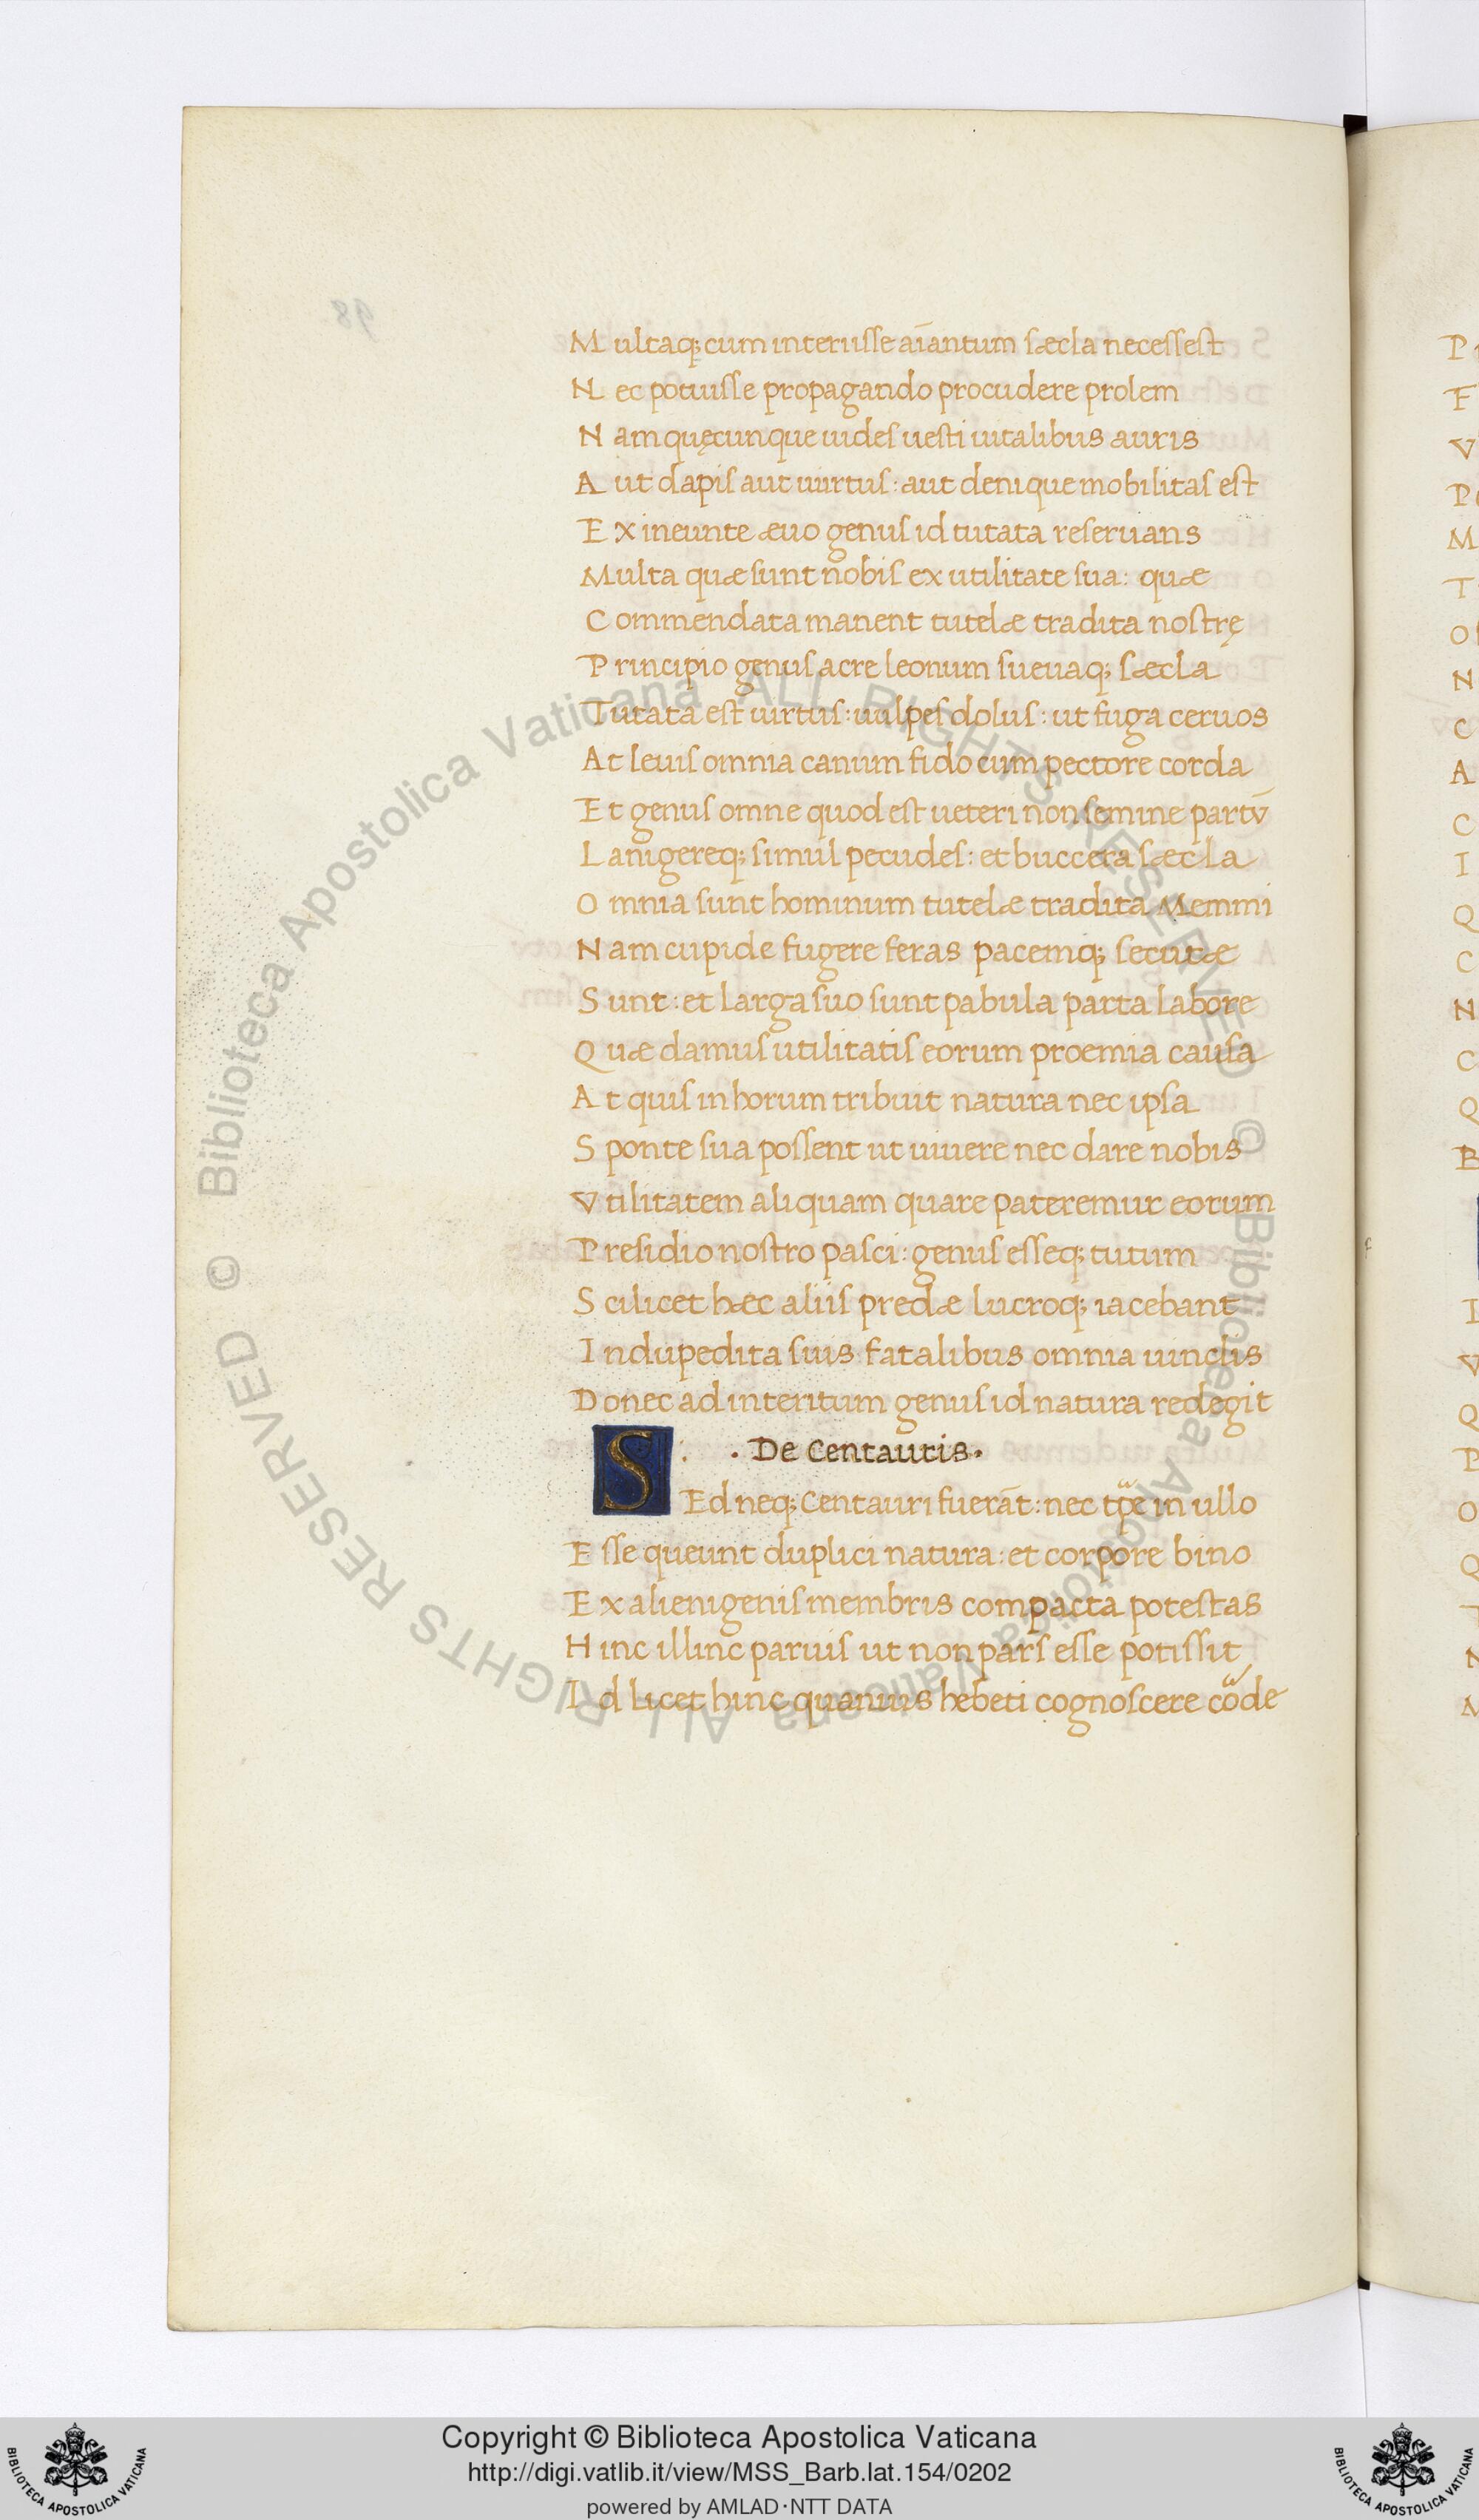 Multaq; cum interiisse aiantum sæcla necessest
Nec potuisse propagando procudere prolem
Nam quęcunque uides uesti uitalibus auris
Aut dapis aut uiirtus: aut denique mobilitas est
Ex ineunte æuo genus id tutata reseruans
Multa quæ sunt nobis ex utilitate sua: quæ
Commendata manent tutelæ tradita nostrę
Principio genus acre leonum sueuaq; sæcla
Tutata est uirtus: uulpes dolus: ut fuga ceruos
At leuis omnia canum fido cum pectore corda
Et genus omne quod est ueteri non semine partū
Lanigereq; simul pecudes: et buccera sæcla
Omnia sunt hominum tutelæ tradita Memmi
Nam cupide fugere feras pacemq; secutæ
Sunt: et larga suo sunt pabula parta labore
Quæ damus utilitatis eorum proemia causa
At quis in horum tribuit natura nec ipsa
Sponte sua possent ut uiuere nec dare nobis
Vtilitatem aliquam quare pateremur eorum
Presidio nostro pasci: genus esseq; tutum
Scilicet hæc aliis predæ lucroq; iacebant
Indupedita suis fatalibus omnia uinclis
Donec ad interitum genus id natura redegit
. De Centauris.
SEd neq; Centauri fuerāt: nec tp̄e in ullo
Esse queunt duplici natura: et corpore bino
Ex alienigenis membris compacta potestas
Hinc illinc paruis ut non pars esse potissit
Id licet hinc quanuis hebeti cognoscere cōde
© Biblioteca Apostolica Vaticana ALL RIGHTS RESERVED
© Biblioteca Apostolica Vaticana ALL RIGHTS RESERVED
Copyright © Biblioteca Apostolica Vaticana
http://digi.vatlib.it/view/MSS_Barb.lat.154/0202
powered by AMLAD·NTT DATA
BIBLIOTECA APOSTOLICA VATICANA
BIBLIOTECA APOSTOLICA VATICANA